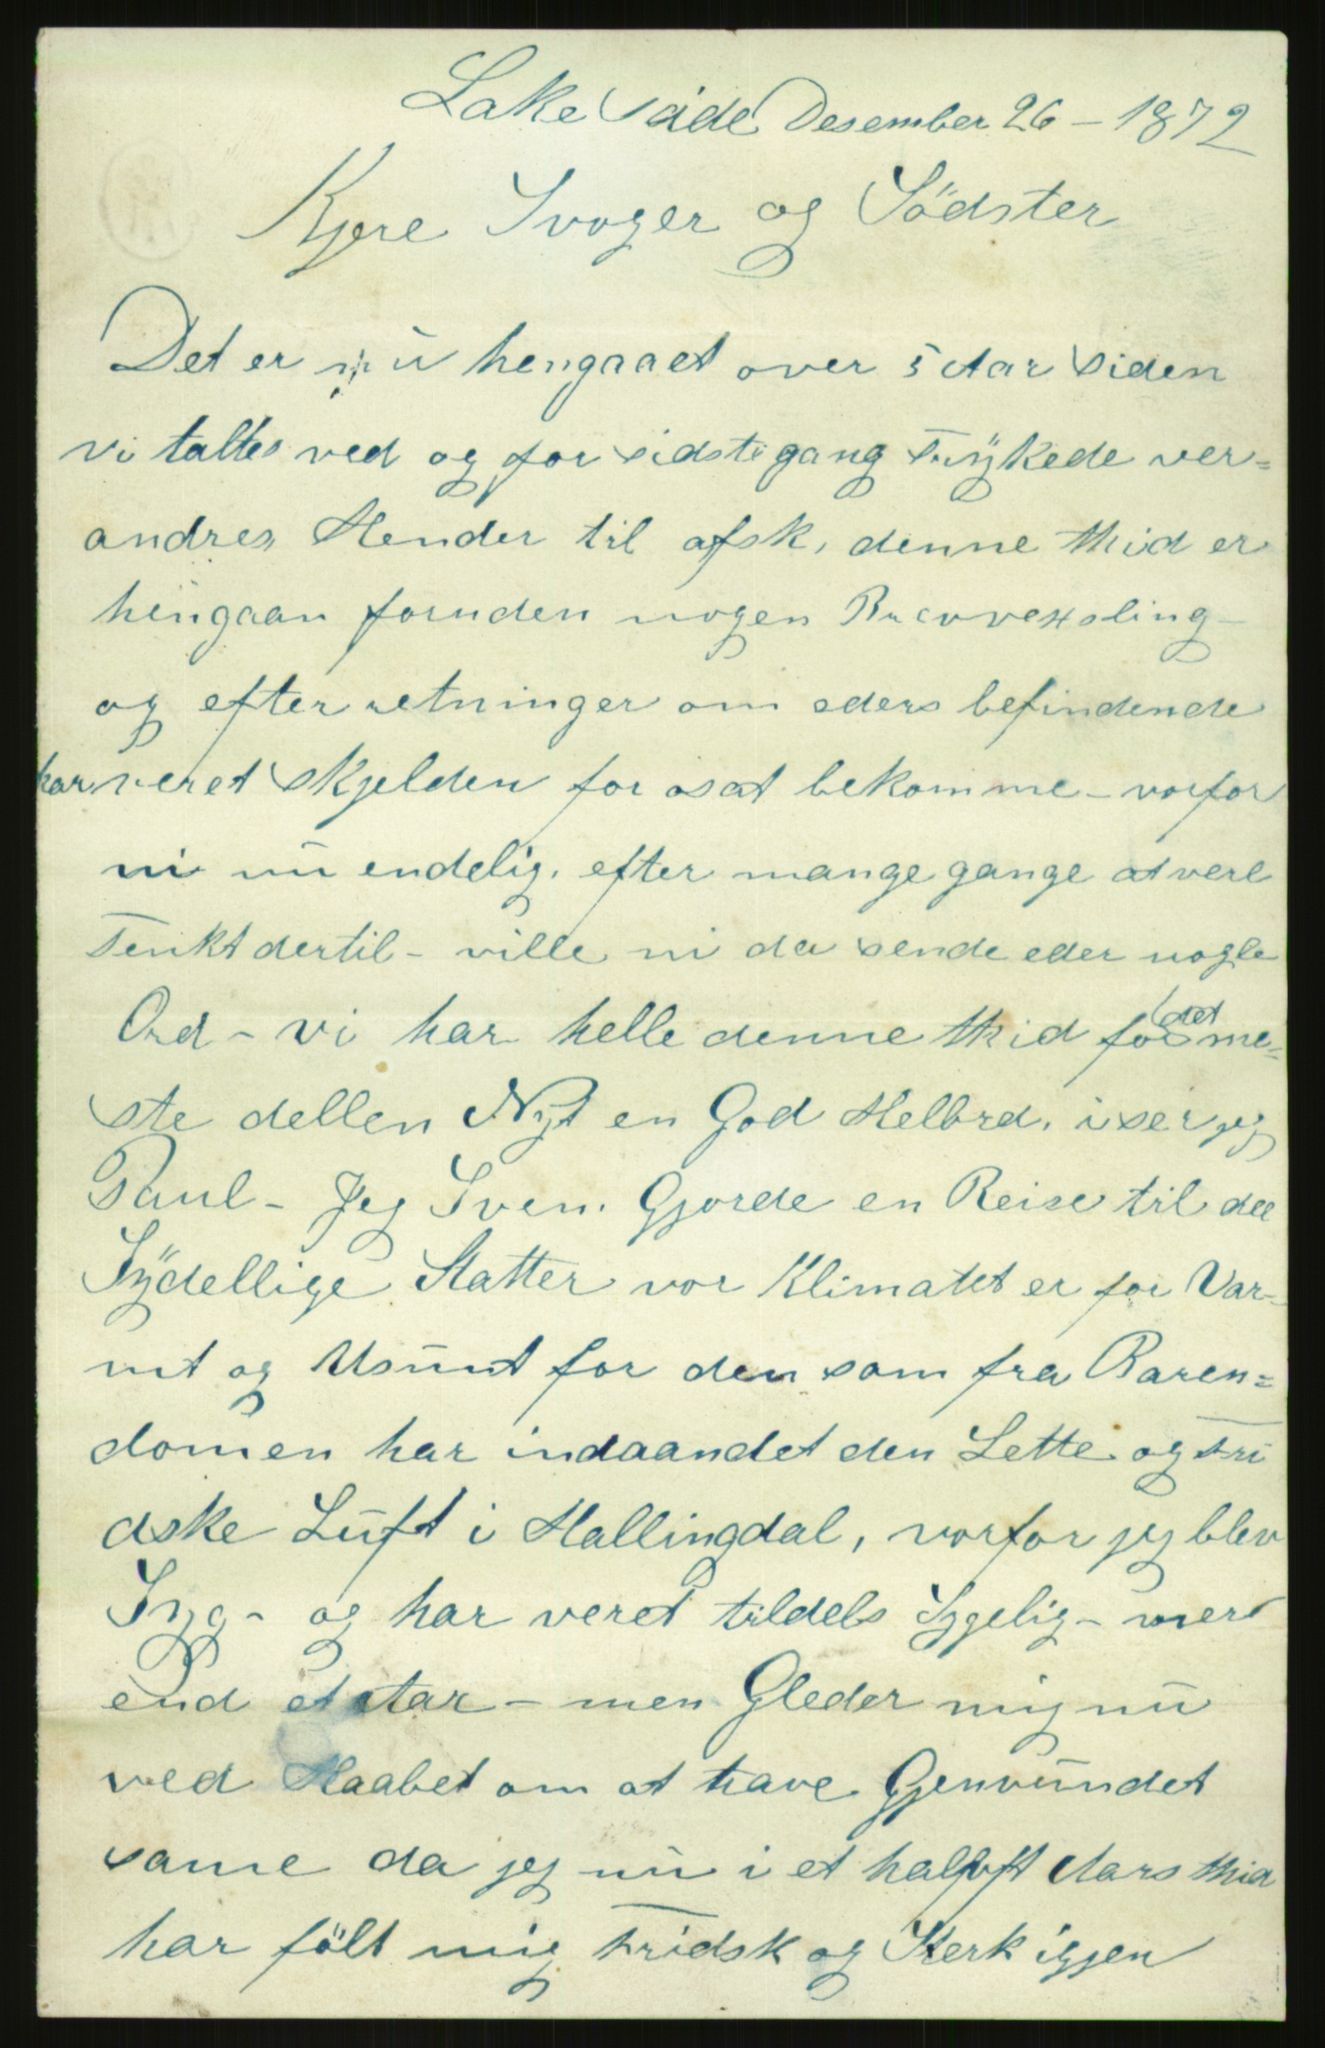 Lake Side Desember 26 – 1872
Kjere Svoger og Södster
Det er nu hengaaet over 5 Aar siden
vi taltes ved og for sidste gang Trÿkede ver=
andres Hender til afsk, denne thid er
hengaan foruden nogen Brevvexsling
og efterretninger om eders befindende
har veret skjelden for os at bekomme – vorfor
vi nu endelig. efter mange gange at vere
Tenkt dertil – ville vi da sende eder nogle
Ord – vi har helle denne thid for det me=
ste dellen Nyt en God Helbrd. iser jeg
Paul – Jeg Sven. Gjorde en Reise til dee
Sÿdellige Statter vor Klimatet er for Var-
mt og Usunt for den som fra Baren=
domen har indaandet den Lette og Fri
dske Luft i Hallingdal, vorfor jeg blev
Syg – og har veret tildels Sygelig – mer
end et Aar – men Gleder mig nu
ved Haabet om at have Gjenvundet
same da jeg nu i et halft Aars thid
har fölt mig Fridsk og Sterk igjen